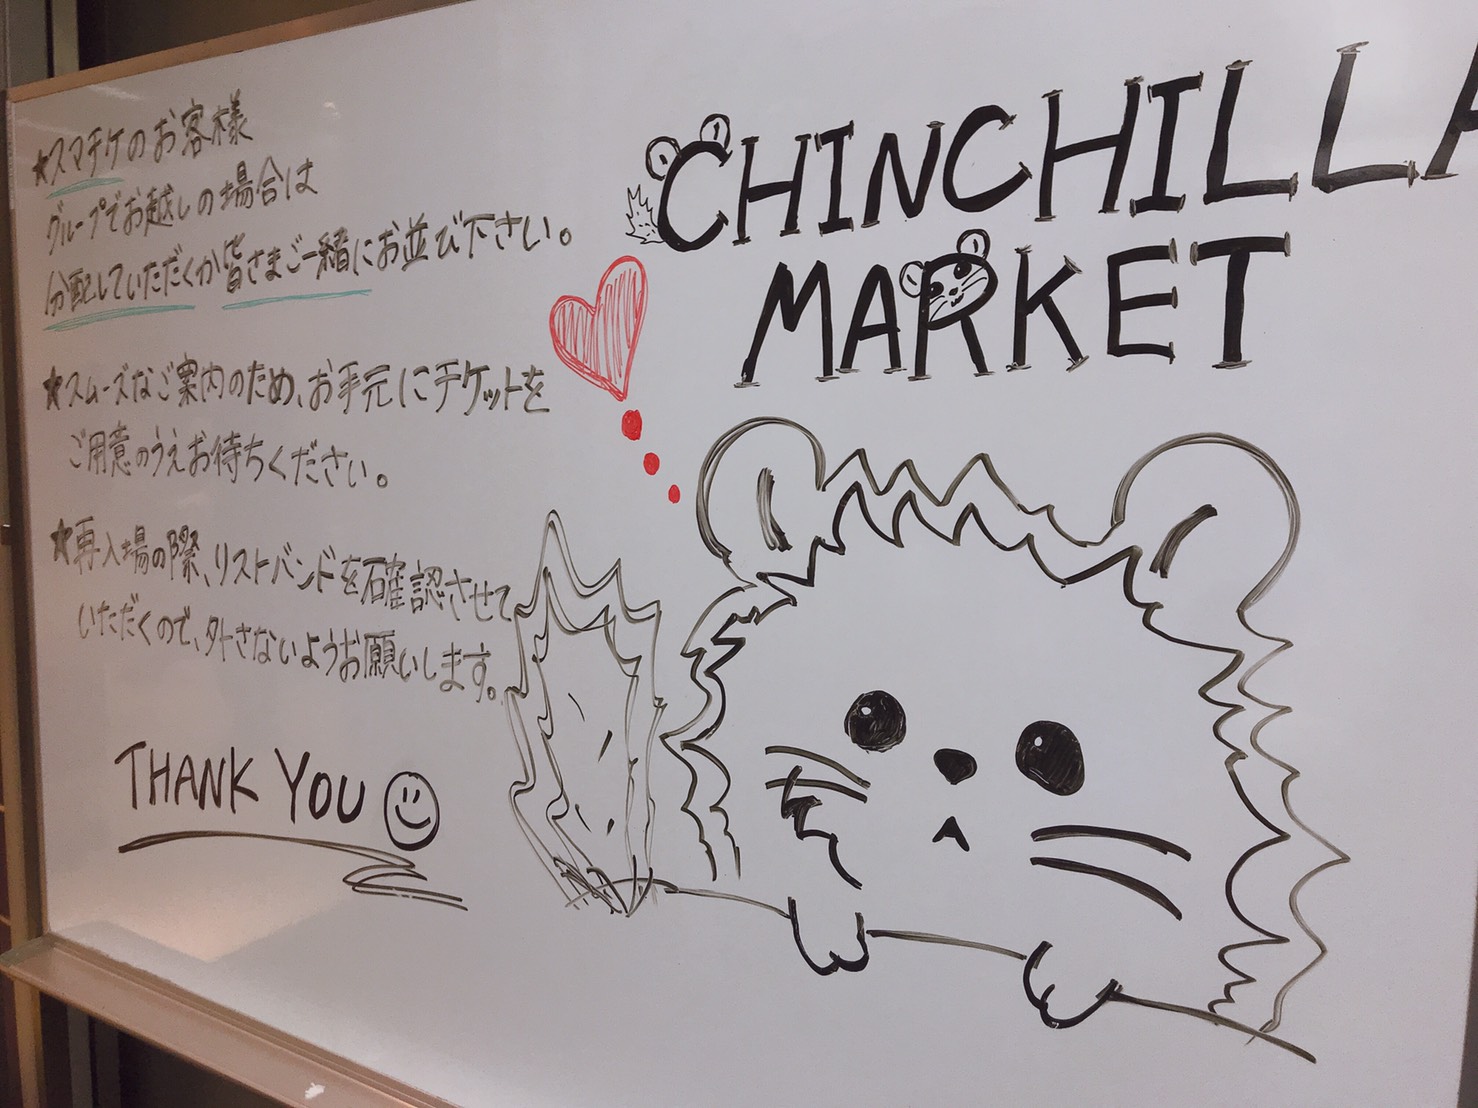 ★スマチケのお客様
グループでお越しの場合は
分配していただくか皆さまご一緒にお並び下さい。
★スムーズなご案内のため、お手元にチケットを
ご用意のうえお待ちください。
★再入場の際、リストバンドを確認させて
いただくので、外さないようお願いします。
THANK YOU
CHINCHILLA
MARKET